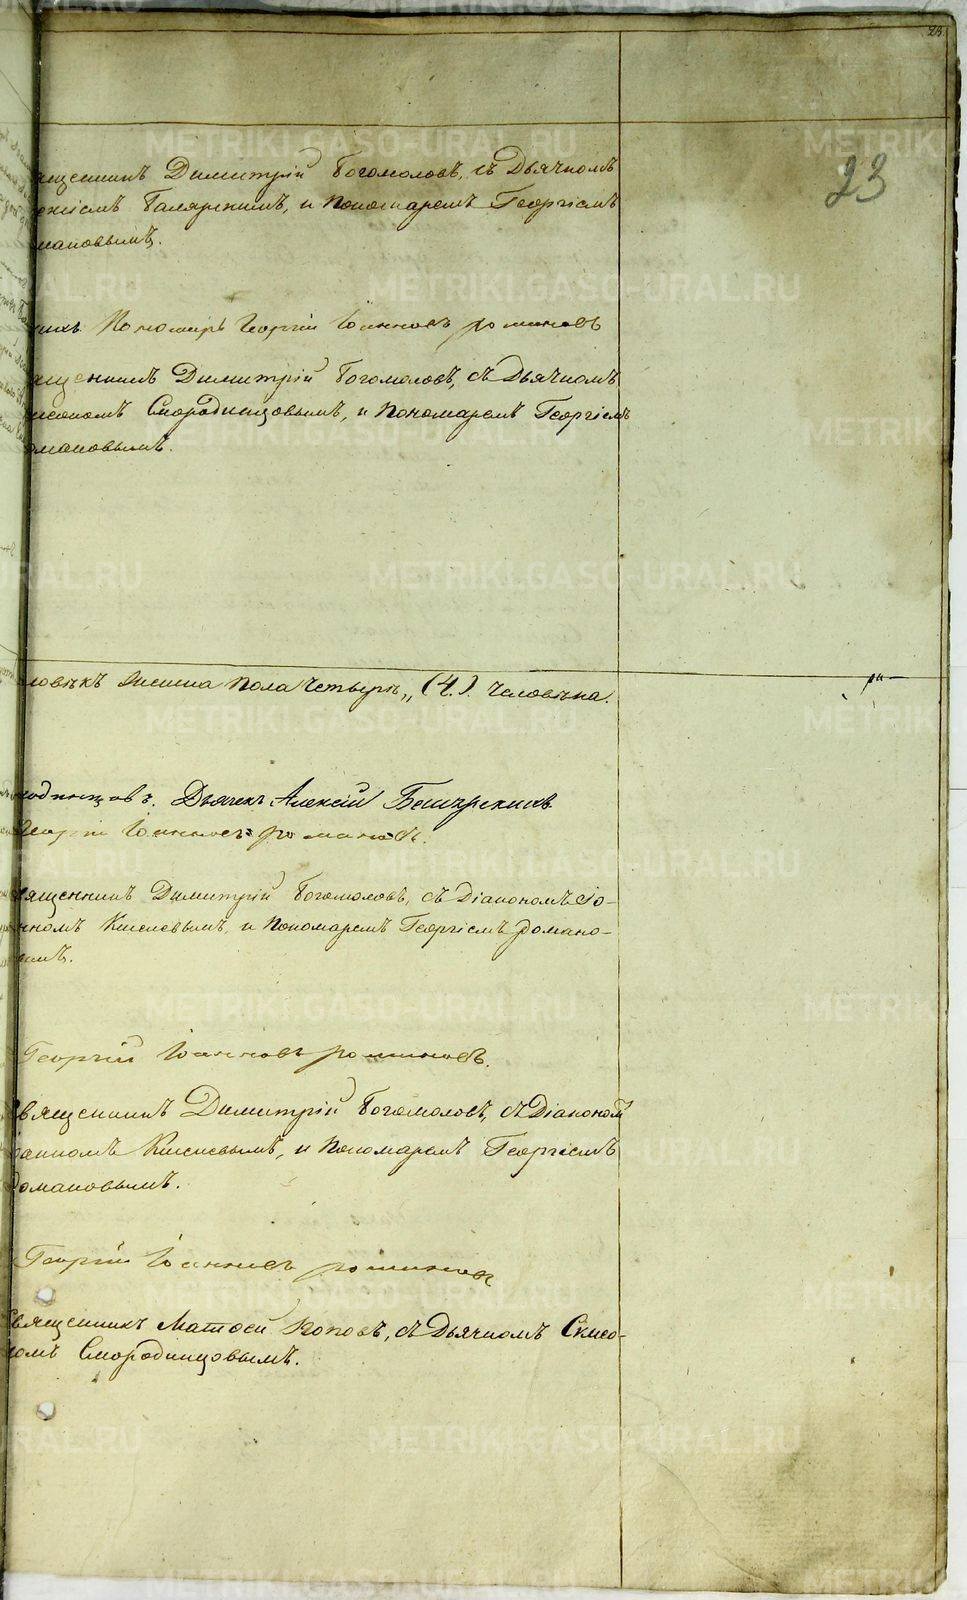 23
23
ященникъ Димитрій Богомоловъ, съ Дьячкомъ
и Пономаремъ Георгіемъ
мановымъ.
Пономарь Георгій Іанновъ романовъ
ященникъ Димитрій Богомоловъ, съ Дьячкомъ
Смородинцовымъ, и Пономаремъ Георгіемъ
омановымъ.
ловѣкъ женска пола четыре „ (4.). человѣка.
родинцовъ. Дьячекъ Алексѣй
Георгій Іанновъ романовъ.
вященникъ Димитрій Богомоловъ, съ Діакономъ Іо-
нномъ Киселевымъ, и Пономаремъ Георгіемъ романо-
вымъ.
Георгій Іанновъ романовъ.
вященникъ Димитрій Богомоловъ, съ Діаконом
оанномъ Киселевымъ, и Пономаремъ Георгіемъ
омановымъ.
Георгій Іанновъ романовъ
Священникъ Матѳей Поповъ, съ Дьячкомъ
омъ Смородинцовымъ.
METRIKI.GASO-URAL.RU